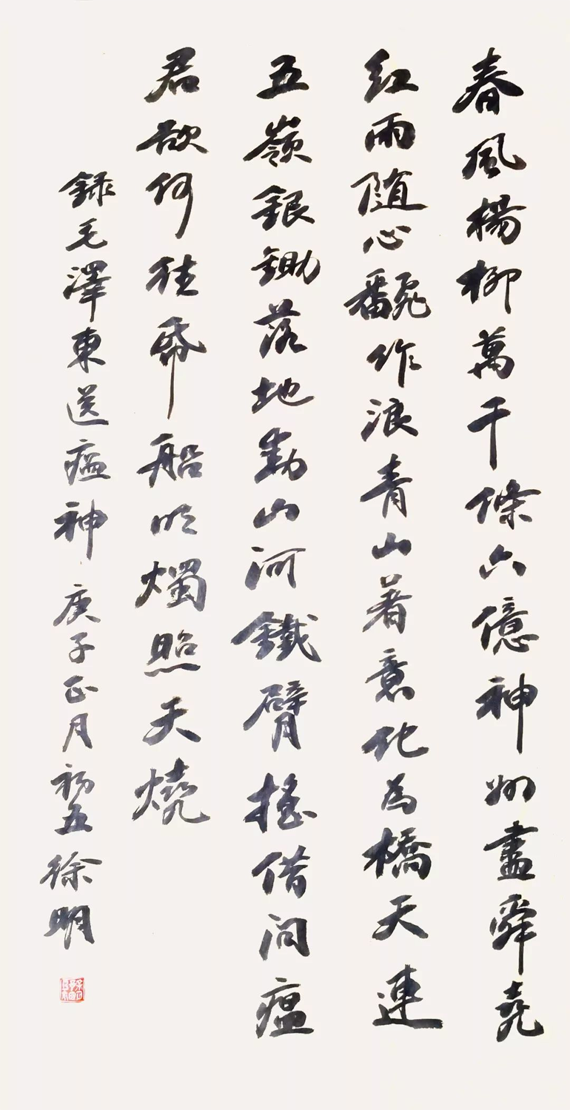 春風楊柳萬千條六億神州盡舜堯
紅雨随心飜作浪青山著意化為橋天連
五嶺銀鋤落地動山河鐵臂摇借问瘟
君欲何往帋船明燭照天燒
録毛澤東送瘟神庚子正月初五徐明